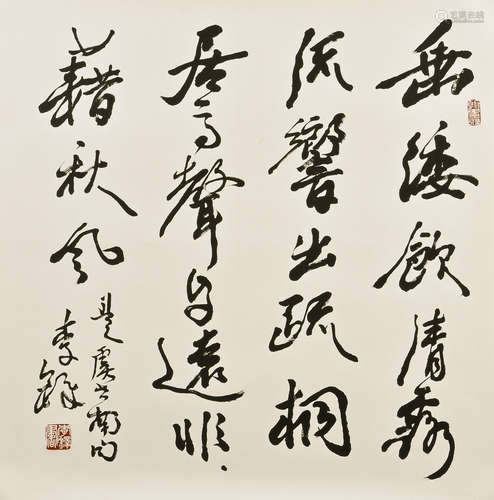 垂緌飲清露
流響出疏桐
居高聲自遠非
藉秋風
是虞世南句
李鐸